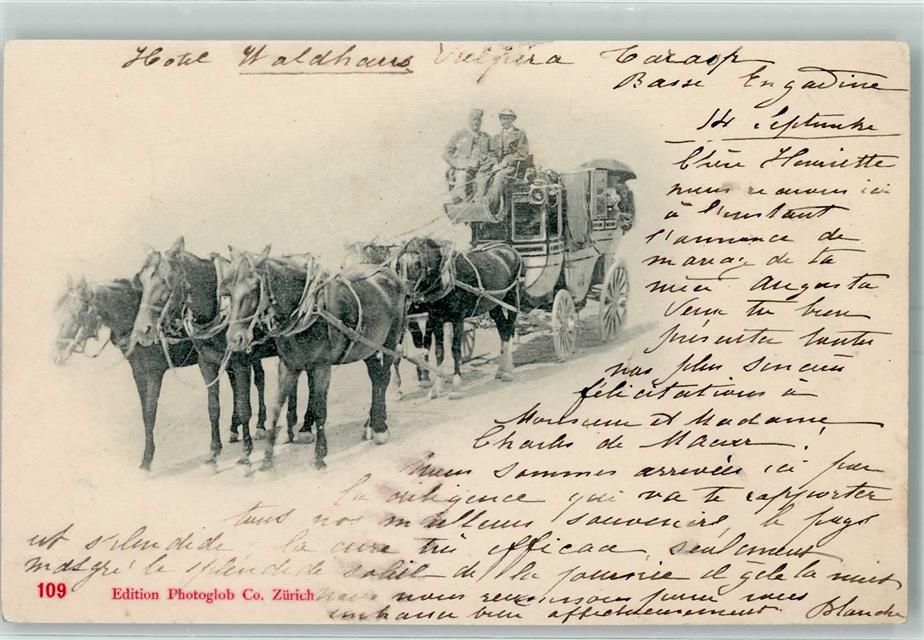 Hotel Waldhaus Vulpera Tarasp
Basse Engadine
14 Septembre
Chère Henriette
nous recevons ici
à l'instant
l'annonce de
mariage de ta
nièce Augusta
Veux tu bien
présenter toutes
nos plus sincères
félicitations à
Monsieur et Madame
Charles de
nous sommes arrivées ici par
la diligence qui va te rapporter
tous nos meilleurs souvenirs, le pays
est splendide, la cure très efficace, seulement
malgré le splendide soleil de la journée il gèle la nuit
nous nous pour vous
embrasser bien affectueusement Blanche
109 Edition Photoglob Co. Zürich